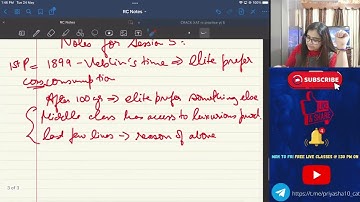 1:46 PM Tue 24 Nov
RC Notes
Notes for Session 5:
1st P = 1899 - Veblen's time ⇒ elite prefer
cons consumption
After 100 yrs ⇒ elite prefer something else
Middle class has access to luxurious prod.
last few lines → reason of above
3 of 3
SUBSCRIBE
LIKE & SHARE
MON TO FRI FREE LIVE CLASSES @ 1:30 PM ON
https://t.me/priyasha10_catking